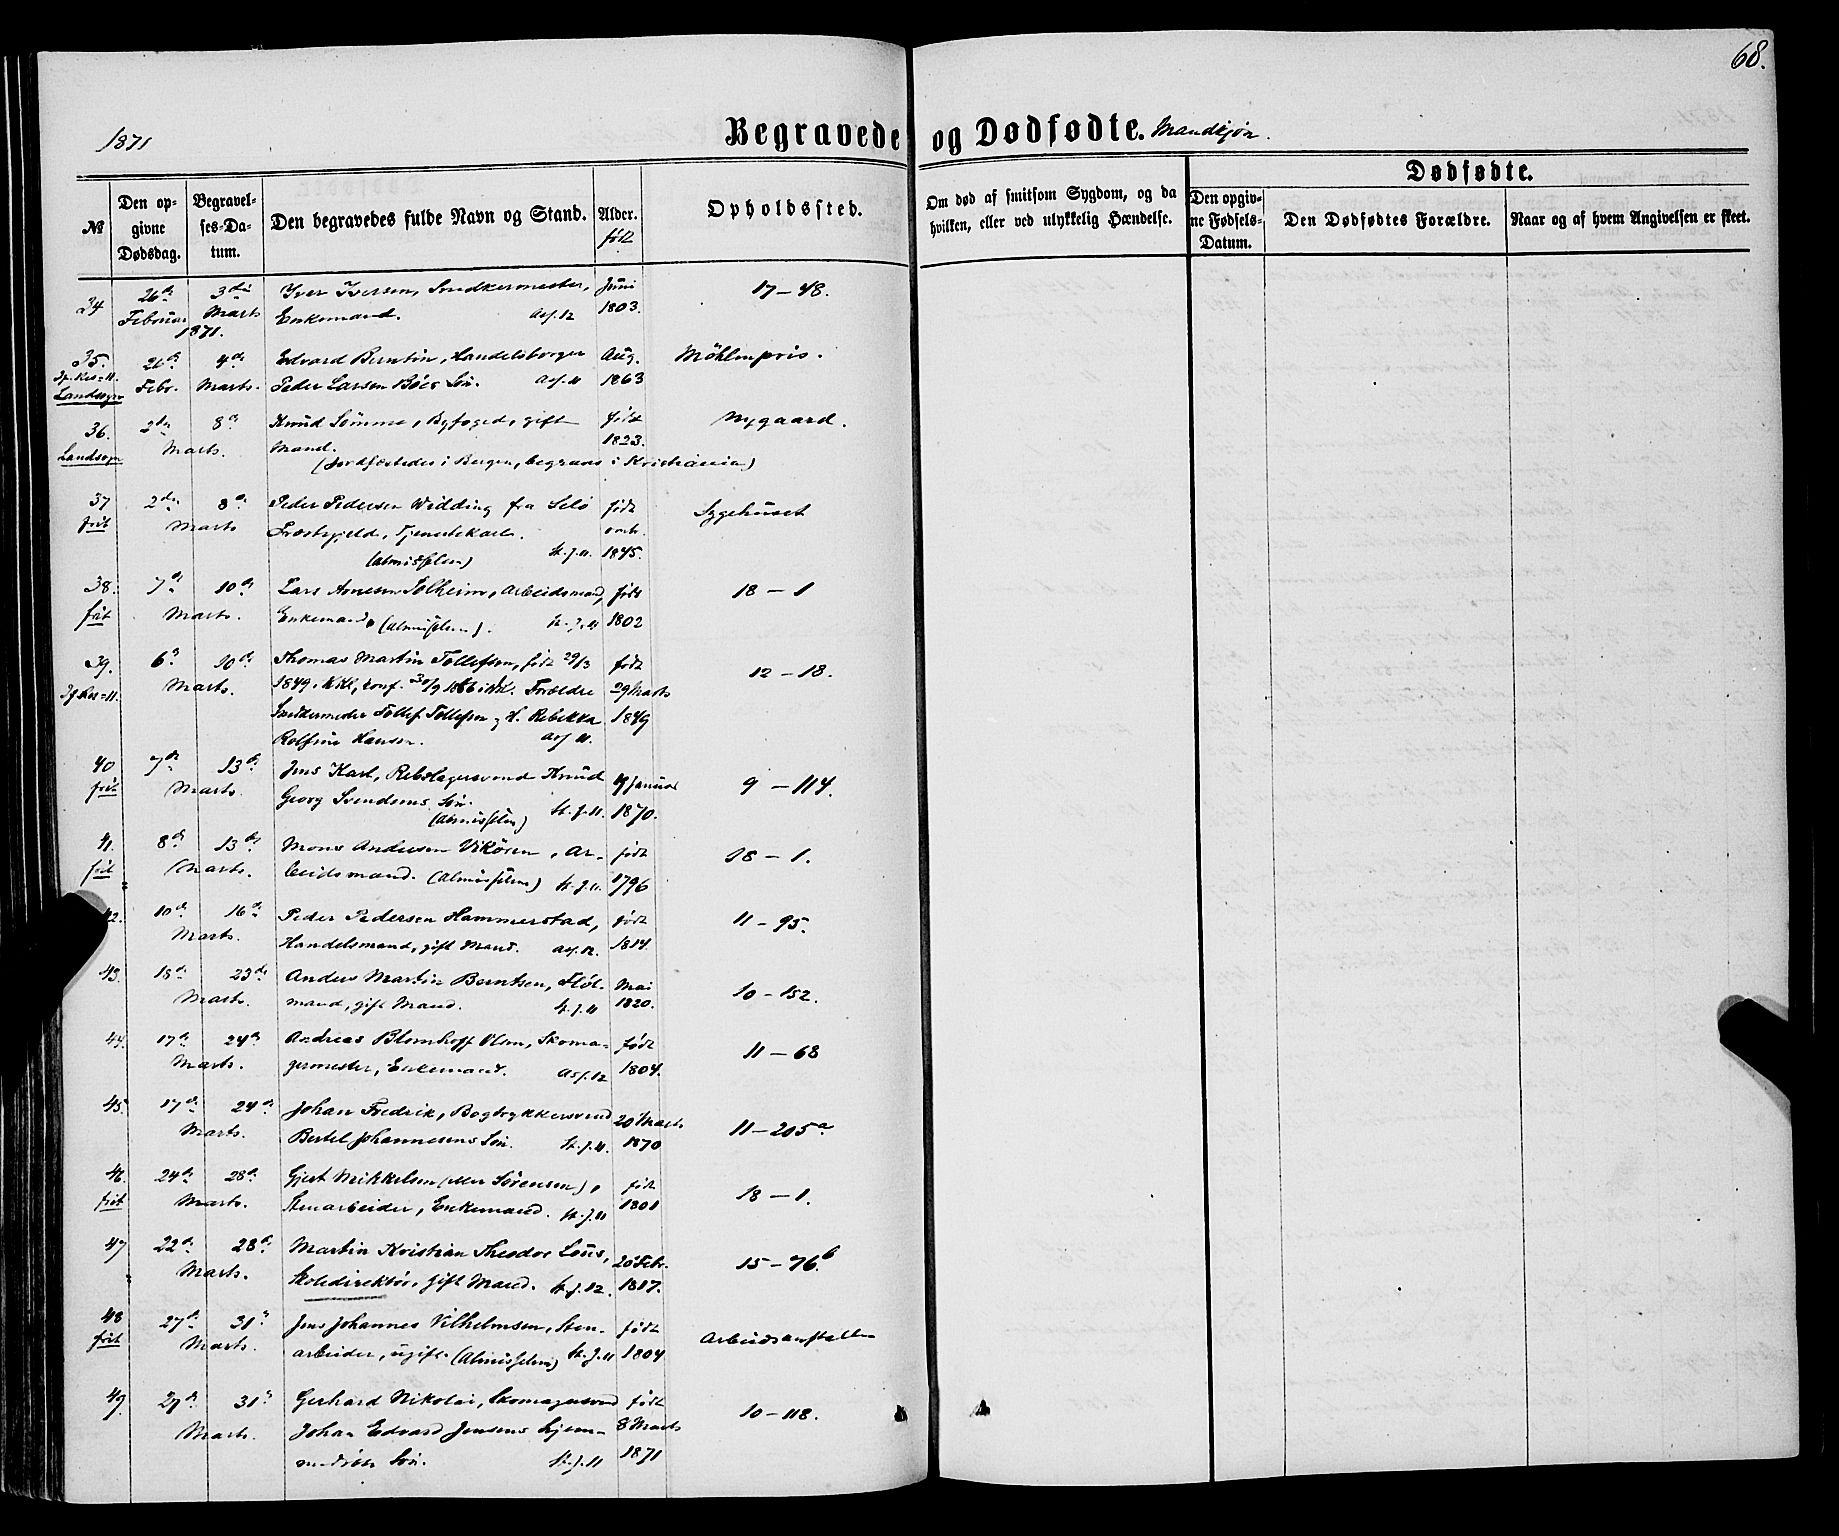 68.
1871
Begravede og Dødfødte. Mandkjøn.
Dødfødte.
№
Den opgivne Dødsdag.
Begravelses-Datum.
Den begravedes fulde Navn og Stand.
Alder. født
Opholdssted.
Om død af smitsom Sygdom, og da hvilken, eller ved ulykkelig Hændelse.
Den opgivne Fødsels-Datum.
Den Dødfødtes Forældre.
Naar og af hvem Angivelsen er skeet.
34 26de 3die Iver Iversen, Snedkermester, Juni 17–48.
Februar Marts 1871. Enkemand. 1803.
35. 26de 4de Edvard Berntin, Handelsborger Aug. Möhlenpris.
Landsogn Febr. Marts. Peder Larsen Böes Sön. 1863
36. 2den 8de Knud Sömme, Byfoged, gift født Nygaard.
Landsogn Marts. Mand. 1823.
(Jordfæstedes i Bergen, begraves i Kristiania)
37 2den 8de Peder Pedersen Widding fra Selö født Sygehuset
frit Marts Præstegjeld, Tjenestekarl. omtr.
(Almisselem) St. J. 11. 1845.
38. 7de 10de Lars Arnesen Solheim, Arbeidsmand, født 18–1
frit Marts. Enkemand, (Almisselem). St. J. 11 1802
39. 6te 10de Thomas Martin Tollefsen, født 29/3 født 12–18.
Marts. 1849. KKl, conf. 30/9 1866 i NK. Forældre 29 Marts
Snedkermester Tollef Tollefsen og H. Rebekka 1849
Rolfine Hansen.
40 7de 13de Jens Karl, Rebslagersvend Knud 19 Januar 9–114.
frit Marts. Georg Svendsens Sön. St. J. 11. 1870.
(Almisselem)
41. 8de 13de Mons Andersen Vikören, Ar- født 18–1.
frit Marts. beidsmand. (Almisselem) St. J. 11. 1796
42. 10de 16de Peder Pedersen Hammerstad, født 11–95.
Marts. Handelsmand, gift Mand. 1814.
43. 18de 23de Anders Martin Berntsen, Fløt- Mai 10–152.
Marts. mand, gift Mand. St. J. 11 1820.
44. 17de 24de Andreas Blomhoff Olsen, Skoma- født 11–68
Marts. germester, Enkemand. 1804.
45. 17de 24de Johan Fredrik, Bogtrykkersvend 20 Marts 11–205a
Marts. Bertel Johannesens Sön. St. J. 11. 1870
46. 24de 28de Gjert Mikkelsen (eller Sörensen), født 18–1.
frit Marts. Stenarbeider, Enkemand. St. J. 11 1801
47 22de 28de Martin Kristian Theodor Lous, 20 Febr. 15–76b
Marts. Skoledirektör, gift Mand. St. J. 12. 1817.
48 27de 31te Jens Johannes Vilhelmsen, Sten- født Arbeidsanstalten
frit Marts. arbeider, ugift. (Almisselem) St. J. 11 1804
49 27de 31te Gerhard Nikolai, Skomagersvend født 10–118.
Marts. Johan Edvard Jensens hjem- 8 Marts
medöbte Sön. St. J. 11 1871